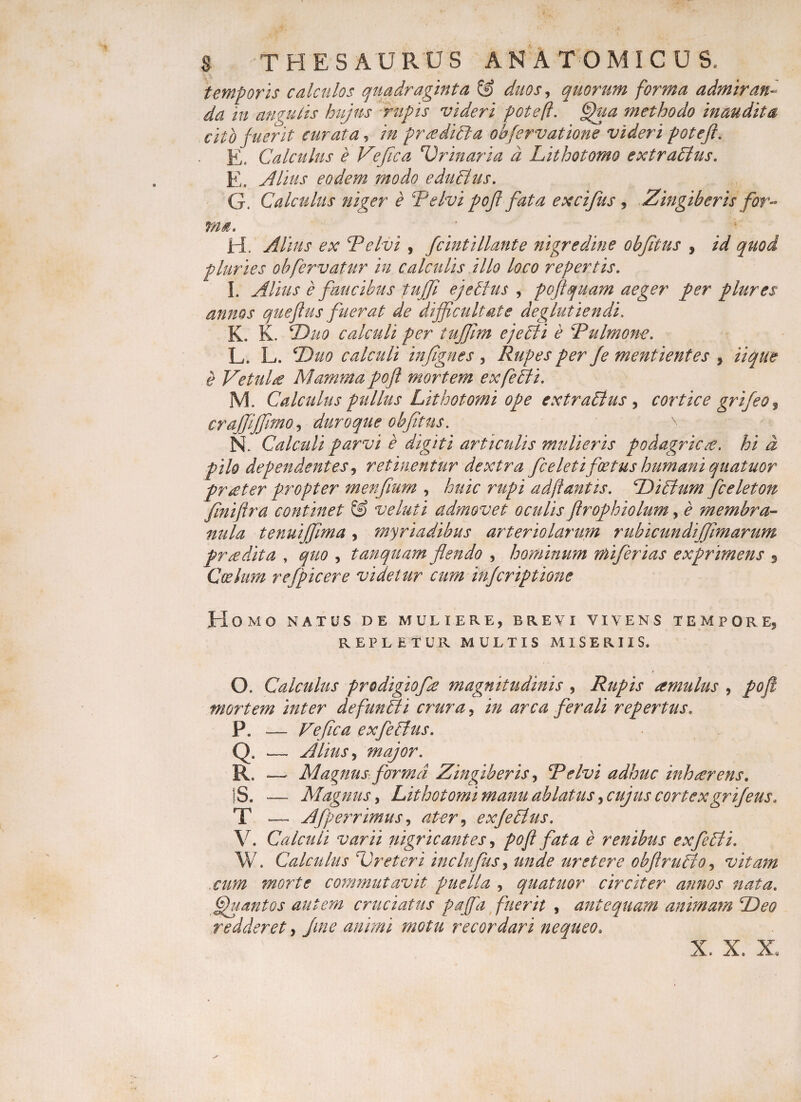 8 THESAURUS ANATOMICUS.
temporis calculos quadraginta & duos, quorum forma admiran-
da in angulis hujus rupis videri poteſt. Qua methodo inaudita
citò fuerit curata, in prædicta obſervatione videri poteſt.
E. Calculus è Veſica Urinaria à Lithotomo extractus.
E. Alius eodem modo eductus.
G. Calculus niger è Pelvi poſt fata exciſus, Zingiberis for-
mæ.
H. Alius ex Pelvi, ſcintillante nigredine obſitus, id quod
pluries obſervatur in calculis illo loco repertis.
I. Alius è faucibus tuſſi ejectus, poſtquam aeger per plures
annos queſtus fuerat de difficultate deglutiendi.
K. K. Duo calculi per tuſſim ejecti è Pulmone.
L. L. Duo calculi inſignes, Rupes per ſe mentientes, iique
è Vetulæ Mamma poſt mortem exſecti.
M. Calculus pullus Lithotomi ope extractus, cortice griſeo,
craſſiſſimo, duroque obſitus.
N. Calculi parvi è digiti articulis mulieris podagricæ. hi à
pilo dependentes, retinentur dextra ſceleti fœtus humani quatuor
præter propter menſium, huic rupi adſtantis. Dictum ſceleton
ſiniſtra continet & veluti admovet oculis ſtrophiolum, è membra-
nula tenuiſſima, myriadibus arteriolarum rubicundiſſimarum
prædita, quo, tanquam flendo, hominum miſerias exprimens,
Cœlum reſpicere videtur cum inſcriptione
HOMO NATUS DE MULIERE, BREVI VIVENS TEMPORE,
REPLETUR MULTIS MISERIIS.
O. Calculus prodigioſæ magnitudinis, Rupis æmulus, poſt
mortem inter defuncti crura, in arca ferali repertus.
P. — Veſica exſectus.
Q. — Alius, major.
R. — Magnus formâ Zingiberis, Pelvi adhuc inhærens.
S. — Magnus, Lithotomi manu ablatus, cujus cortex griſeus.
T — Aſperrimus, ater, exſectus.
V. Calculi varii nigricantes, poſt fata è renibus exſecti.
W. Calculus Ureteri incluſus, unde uretere obſtructo, vitam
cum morte commutavit puella, quatuor circiter annos nata.
Quantos autem cruciatus paſſa fuerit, antequam animam Deo
redderet, ſine animi motu recordari nequeo.
X. X. X.